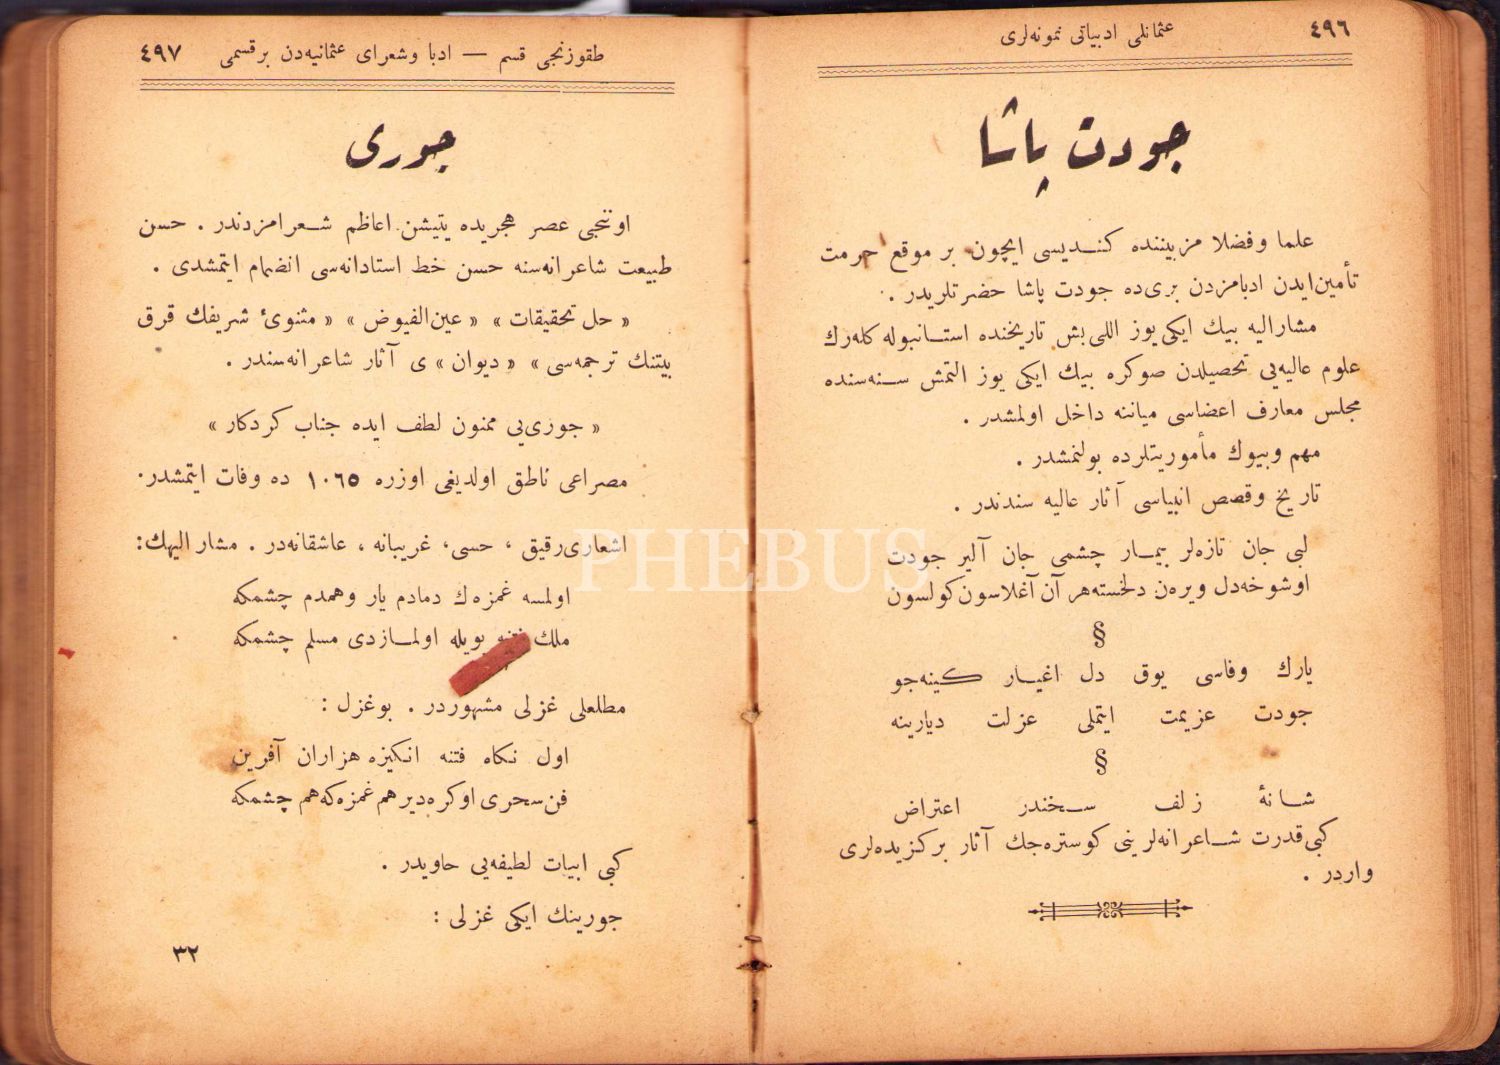 ٤٩٦
عثمانلی ادبیاتی نمونه‌لری
جودت پاشا
علما وفضلا مزبیننده کندیسی ایچون بر موقع حرمت
تأمین‌ایدن ادبامزدن بری‌ده جودت پاشا حضرتلریدر .
مشارالیه بیك ایكی‌یوز اللی‌بش تاریخنده استانبوله کله‌رك
علوم عالیه‌یی تحصیلدن صوكره بیك ایكی یوز التمش سنه‌سنده
مجلس معارف اعضاسی میاننه داخل اولمشدر .
مهم وبیوك مأموریتلرده بولنمشدر .
تاریخ وقصص انبیاسی آثار عالیه سندندر .
لبی جان تازه‌لر بیمار چشمی جان آلیر جودت
اوشوخه‌دل ویره‌ن دلخسته‌هر آن آغلاسون‌کولسون
§
یارك وفاسی یوق دل اغیار کینه‌جو
جودت عزیمت ایتملی عزلت دیارینه
§
شانهٔ زلف سخندر اعتراض
کبی‌قدرت شاعرانه‌لرینی کوستره‌جك آثار برکزیده‌لری
واردر .
طقوزنجی قسم — ادبا وشعرای عثمانیه‌دن برقسمی
٤٩٧
جوری
اوننجی عصر هجریده یتیشن اعاظم شعرامزدندر . حسن
طبیعت شاعرانه‌سنه حسن خط استادانه‌سی انضمام ایتمشدی .
« حل تحقیقات » « عین‌الفیوض » « مثنوئ شریفك قرق
بیتنك ترجمه‌سی » « دیوان » ی آثار شاعرانه‌سندر .
« جوری‌یی ممنون لطف ایده جناب کردکار »
مصراعی ناطق اولدیغی اوزره ١٠٦٥ ده وفات ایتمشدر.
اشعاری‌رقیق ، حسی، غریبانه ، عاشقانه‌در . مشار الیهك:
اولمسه غمزه‌ك دمادم یار وهمدم چشمكه
ملك فتنه بویله اولمازدی مسلم چشمكه
مطلعلی غزلی مشهوردر . بوغزل :
اول نكاه فتنه انكیزه هزاران آفرین
فن‌سحری اوکره‌دیرهم‌غمزه‌که‌هم چشمكه
کبی ابیات لطیفه‌یی حاویدر .
جورینك ایكی غزلی :
٣٢
PHEBUS